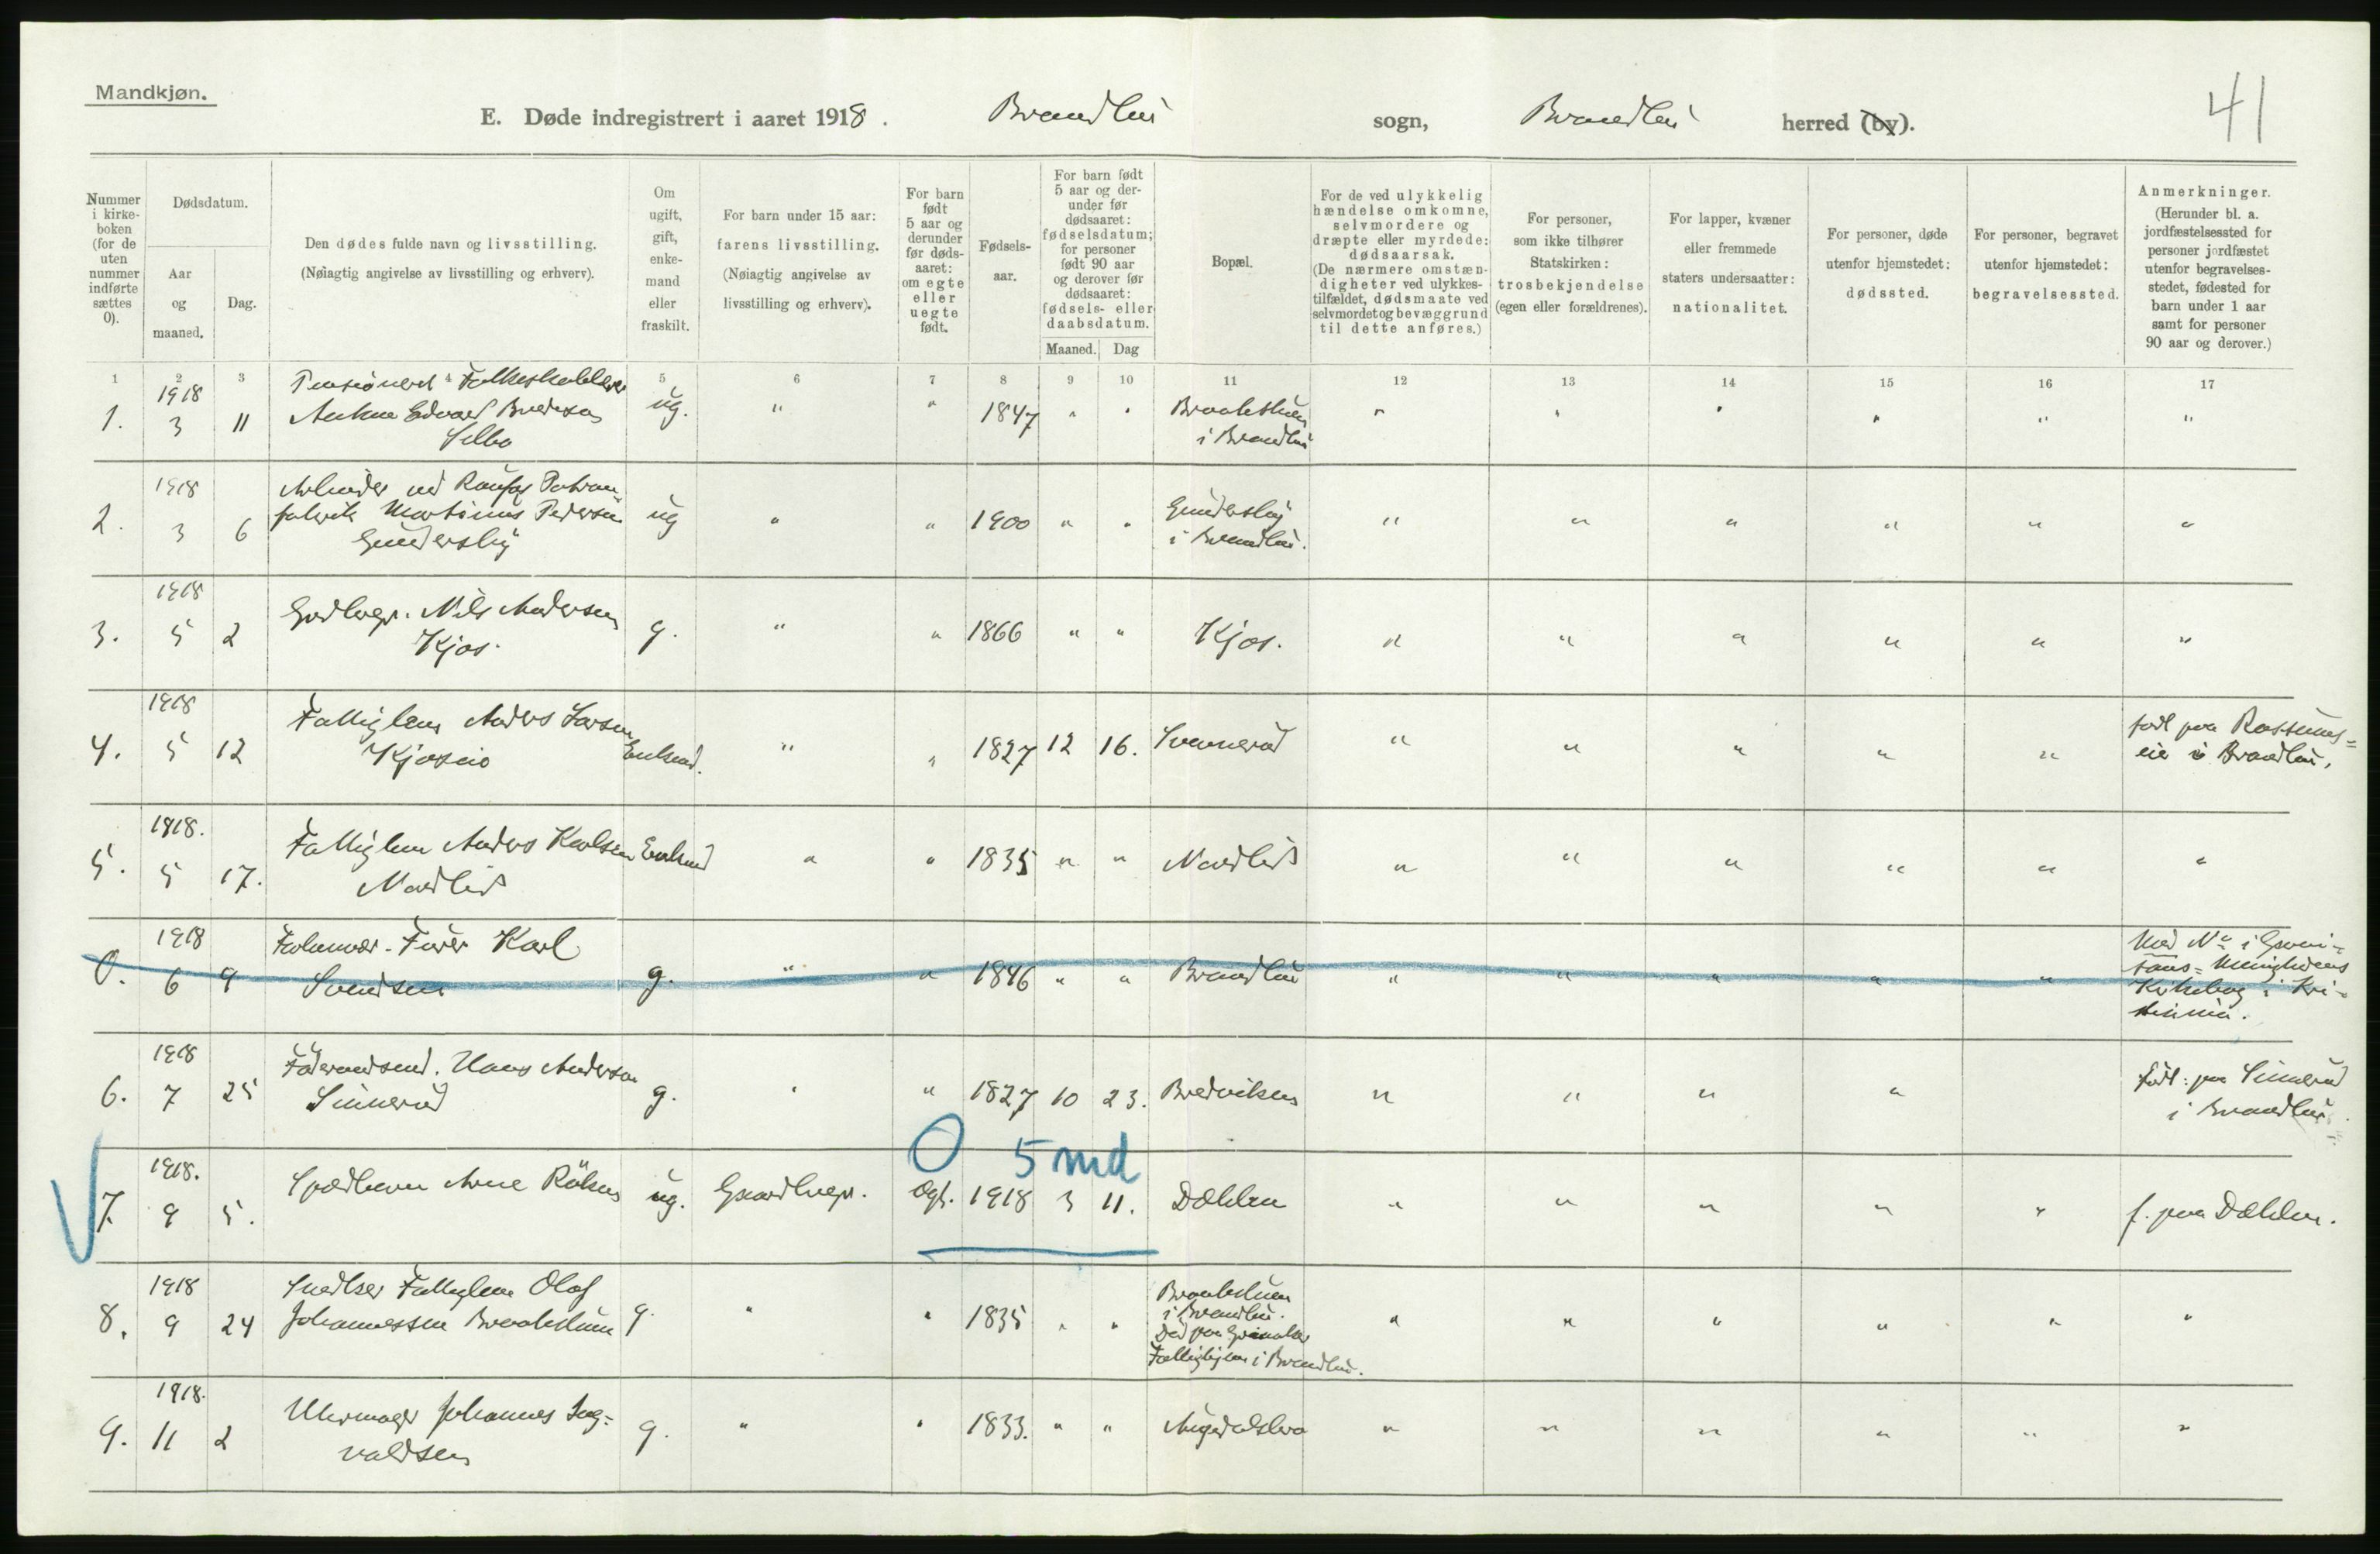 Mandkjøn.
E. Døde indregistrert i aaret 1918. Brandbu sogn, Brandbu herred (by).
41
Nummer i kirke-boken (for de uten nummer indførte sættes 0).
Dødsdatum.
Aar og maaned.
Dag.
Den dødes fulde navn og livsstilling.
(Nøiagtig angivelse av livsstilling og erhverv).
Om ugift, gift, enke-mand eller fraskilt.
For barn under 15 aar: farens livsstilling.
(Nøiagtig angivelse av livsstilling og erhverv).
For barn født 5 aar og derunder før døds-aaret: om egte eller uegte født.
Fødsels-aar.
For barn født 5 aar og der-under før dødsaaret: fødselsdatum; for personer født 90 aar og derover før dødsaaret: fødsels- eller daabsdatum.
Maaned. Dag
Bopæl.
For de ved ulykkelig hændelse omkomne, selvmordere og dræpte eller myrdede: dødsaarsak.
(De nærmere omstæn-digheter ved ulykkes-tilfældet, dødsmaate ved selvmordet og bevæggrund til dette anføres.)
For personer, som ikke tilhører Statskirken: trosbekjendelse (egen eller forældrenes).
For lapper, kvæner eller fremmede staters undersaatter: nationalitet.
For personer, døde utenfor hjemstedet: dødssted.
For personer, begravet utenfor hjemstedet: begravelsessted.
Anmerkninger.
(Herunder bl. a. jordfæstelsessted for personer jordfæstet utenfor begravelses-stedet, fødested for barn under 1 aar samt for personer 90 aar og derover.)
1 2 3 4 5 6 7 8 9 10 11 12 13 14 15 16 17
1. 1918 3 11 Pensioneret Folkeskolelærer
Edvard
ug. " " 1847 " " i Brandbu " " " " " "
2. 1918 3 6 Arbeider ved Raufos Patron-
fabrik Martinus Pedersen
Gundersby
ug " " 1900 " " Gundersby
i Brandbu. " " " " " "
3. 1918 5 2 Gardbrgr. Nils Andersen
Kjos.
g. " " 1866 " " Kjos. " " " " " "
4. 1918 5 12 Fattiglem Anders Larsen
Kjoseie
Enkemd. " " 1827 12 16. " " " " "
født paa
eie i Brandbu.
5. 1918. 5 17. Fattiglem Anders Karlsen
Nordlid
Enkemd " " 1835 " " Nordlid " " " " " "
0. 1918 6 9 Furer Karl
Svendsen
g. " " 1846 " " Brandbu " " " " "
Med No i Garni-
sons-Menighedens
Kirkebog i Kri-
stiania.
6. 1918 7 25 Føderaadsmd. Hans Anderson
Sinnerud
g. " " 1827 10 23. Bredviken " " " "
Født: paa Sinnerud
i Brandbu
0 5 md
7. 1918. 9 5. Spædbarn Arne
ug. Gaardbrgr. Ægt. 1918 3 11. Dæhlen " " " " "
f. paa Dæhlen.
8. 1918 9 24 Snedker Fattiglem Olaf
Johannessen
g. " " 1835 " "
i Brandbu.
Død paa
i Brandbu. " " " " " "
9. 1918. 11 2 Uhrmager Johannes Ing-
valdsen
g. " " 1833. " " " " " " " "